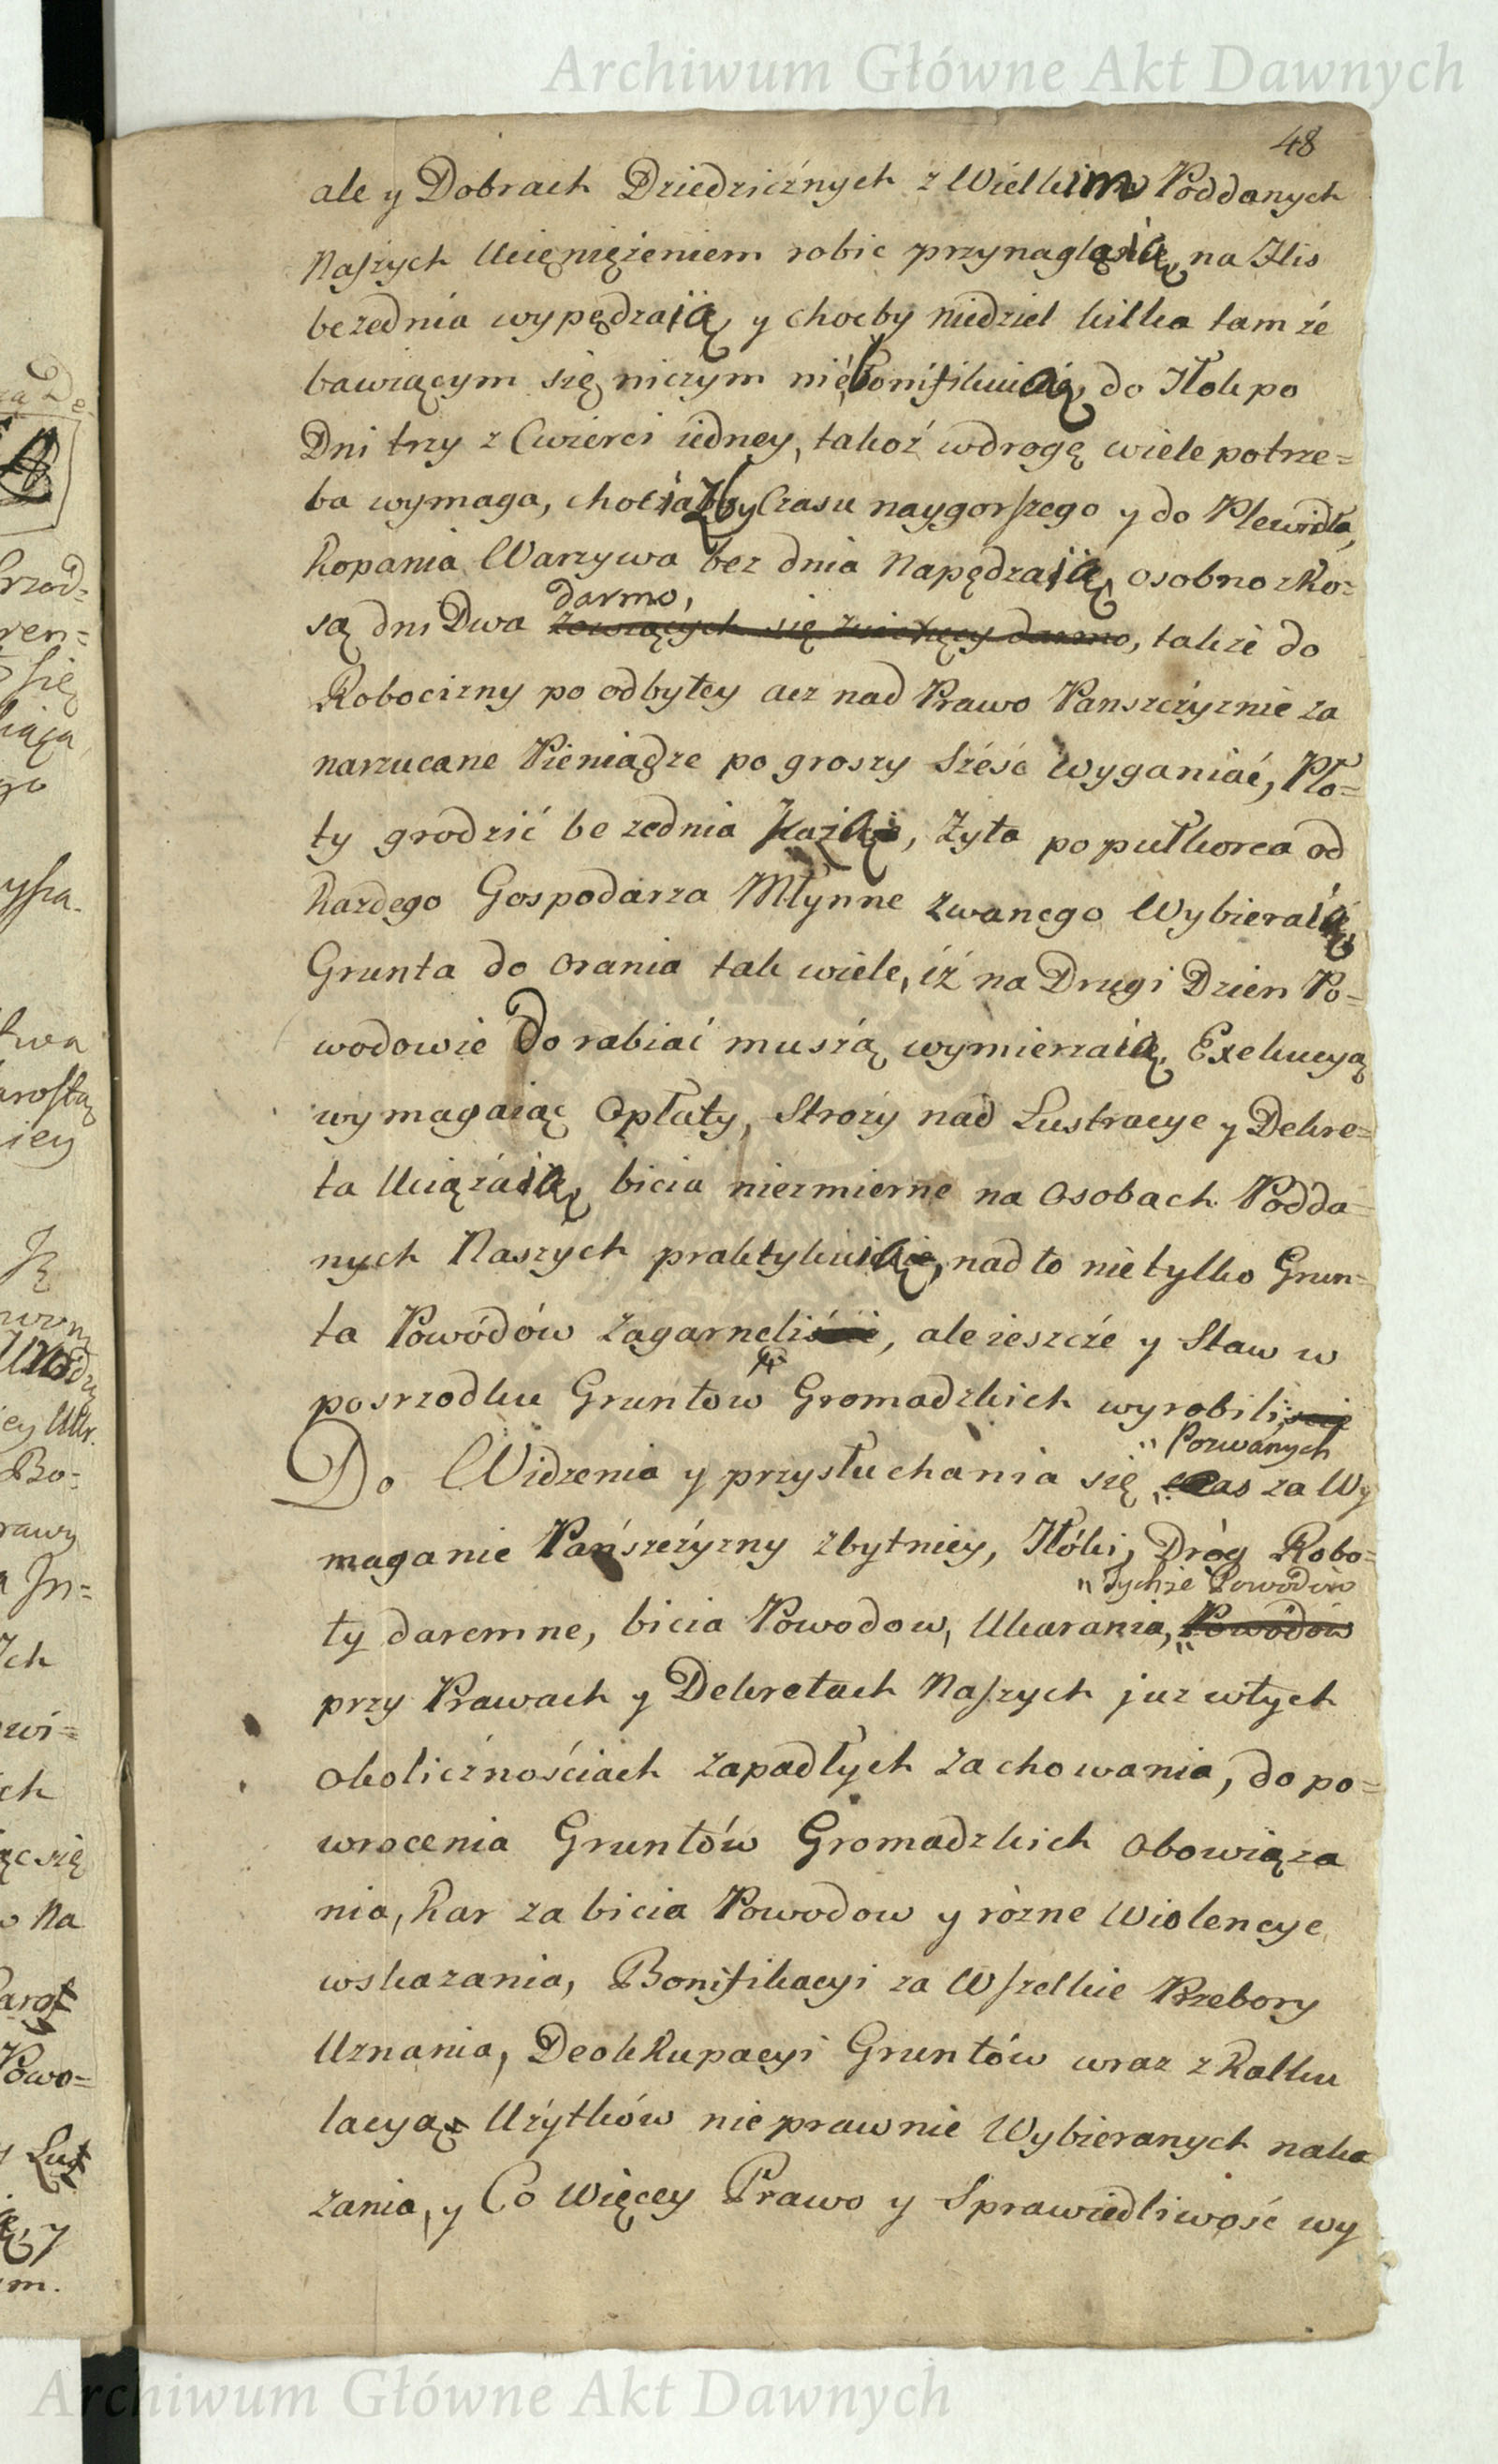 Archiwum Główne Akt Dawnych
48
ale y Dobrach Dziedzicznych z Wielkim Poddanych
Naszych Uciężnieniem robic przynaglaią, na Flis
bezednia wypędzaią, y chocby niedziel kilka tam że
bawiącym się niczym nie bonifikuią, do Tłok po
Dni trzy z Cwierci iedney, takoż wdrogę wiele potrze=
ba wymaga, chociażby Czasu naygorszego y do Plewidła,
Kopania Warzywa bez dnia Napędzaią, osobno z Ko=
darmo,
są dni Dwa, takze do
Robocizny po odbytey acz nad Prawo Panszczyznie za
narzucane Pieniądze po groszy sześć Wyganiać, Pło=
ty grodzić bezednia każą, Zyta po pułkorca od
każdego Gospodarza Młynne zwanego Wybieraią
Grunta do orania tak wiele, iż na Drugi Dzien Po=
wodowie do rabiać muszą wymierzaią, Exekucyą
wymagaiąc Opłaty, Strozy nad Lustracye y Dekre=
ta Uciążaią, bicia niezmierne na Osobach Podda=
nych Naszych praktykuią, nad to nie tylko Grun=
ta Powódów zagarneli, ale ieszcze y Staw w
posrzodku Gruntow Gromadzkich wyrobili
" Pozwanych
Do Widzenia y przysłuchania się „ was za Wy
maganie Pańszczyzny zbytniey, Tłóki, Dróg Robo=
" Tychże Powodów
ty daremne, bicia Powodow, Ukarania, Powodów
przy Prawach y Dekretach Naszych juz wtych
okolicznościach zapadłych zachowania, do po=
wrocenia Gruntów Gromadzkich obowiąza
nia, kar za bicia Powodow y rózne Wiolencye
wskazania, Bonifikacyi za Wszelkie Przebory
Uznania, Deokkupacyi Gruntów wraz z Kalku
lacyą Użytków nieprawnie Wybieranych naka
zania, y Co Więcey Prawo y Sprawiedliwość wy
Archiwum Główne Akt Dawnych